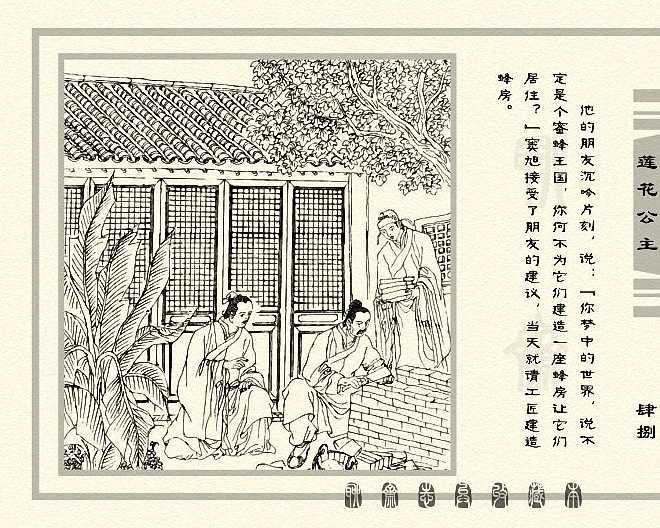 莲花公主
肆捌
他的朋友沉吟片刻，说：「你梦中的世界，说不
定是个蜜蜂王国，你何不为它们建造一座蜂房让它们
居住？」窦旭接受了朋友的建议，当天就请工匠建造
蜂房。